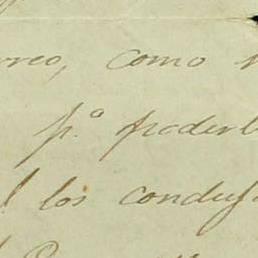 rreo, como
p.º poderl
l los condus